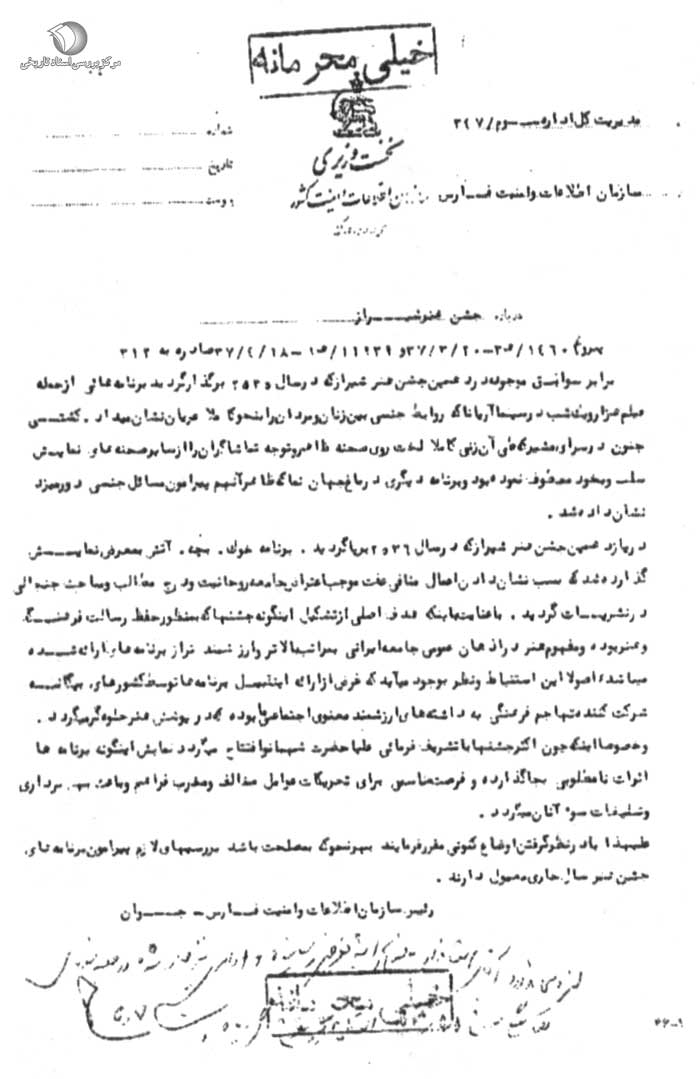 مرکز بررسی اسناد تاریخی
خیلی محرمانه
مدیریت کل اداره سوم/ ۳۴۷
شماره
نخست وزیری
تاریخ
سازمان اطلاعات و امنیت فارس
سازمان اطلاعات و امنیت کشور
پیوست
درباره جشن هنر شیراز
پیرو ۱۴۶۰/ ۳۷/۳/۲۰-۳ و ۱۱۹۳۹/ ۳۷/۴/۱۸-۱ صادره به ۳۱۲
برابر سوابق موجود در دهمین جشن هنر شیراز که در سال ۲۵۳۵ برگذار گردید برنامه هائی از جمله
فیلم هزار و یکشب در سینما آریانا که روابط جنسی بین زنان و مردان را بنحو کاملا عریان نشان میداد . کفتسی
جنون در سرای مشیر که طی آن زنی کاملا لخت روی صحنه ظاهر و توجه تماشاگران را از سایر صحنه های نمایش
سلب و بخود معطوف نموده بود و برنامه دیگری در باغ جهان نما که ظاهر آنهم پیرامون مسائل جنسی دور میزد
نشان داده شد .
در یازدهمین جشن هنر شیراز که در سال ۲۵۳۶ برپا گردید . برنامه خوک . بچه . آتش بمعرض نمایش
گذارده شد که بسبب نشان دادن اعمال منافی عفت موجب اعتراض جامعه روحانیت و درج مطالب و مباحث جنجالی
در نشریات گردید . با عنایت باینکه هدف اصلی از تشکیل اینگونه جشنها که بمنظور حفظ رسالت فرهنگ
و هنر بوده و مفهوم هنر در اذهان عمومی جامعه ایرانی بمراتب بالاتر و ارزشمند تر از برنامه های ارائه شده
میباشد اصولا این استنباط و نظر بوجود میآید که غرض از ارائه اینقبیل برنامه ها توسط کشورهای بیگانه
شرکت کننده تهاجم فرهنگی به داشته های ارزشمند معنوی اجتماع ما بوده که در پوشش هنر جلوه گر میگردد .
و خصوصا اینکه چون اکثر جشنها با تشریف فرمائی علیاحضرت شهبانو افتتاح میگردد نمایش اینگونه برنامه ها
اثرات نامطلوبی بجا گذارده و فرصت مناسبی برای تحریکات عوامل مخالف و مخرب فراهم و باعث بهره برداری
و تبلیغات سوء آنان میگردد .
علیهذا با در نظر گرفتن اوضاع کنونی مقرر فرمایند بهر نحو که بمصلحت باشد بررسیهای لازم پیرامون برنامه های
جشن هنر سال جاری معمول دارند .
رئیس سازمان اطلاعات و امنیت فارس - جوان
خیلی محرمانه